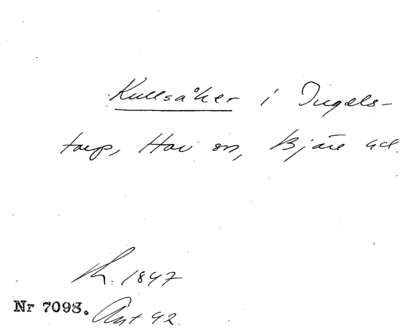 Kullsåker i Ingels-
torp, Hov sn, Bjäre hd.
K. 1847
Nr 7098. Ant 42.